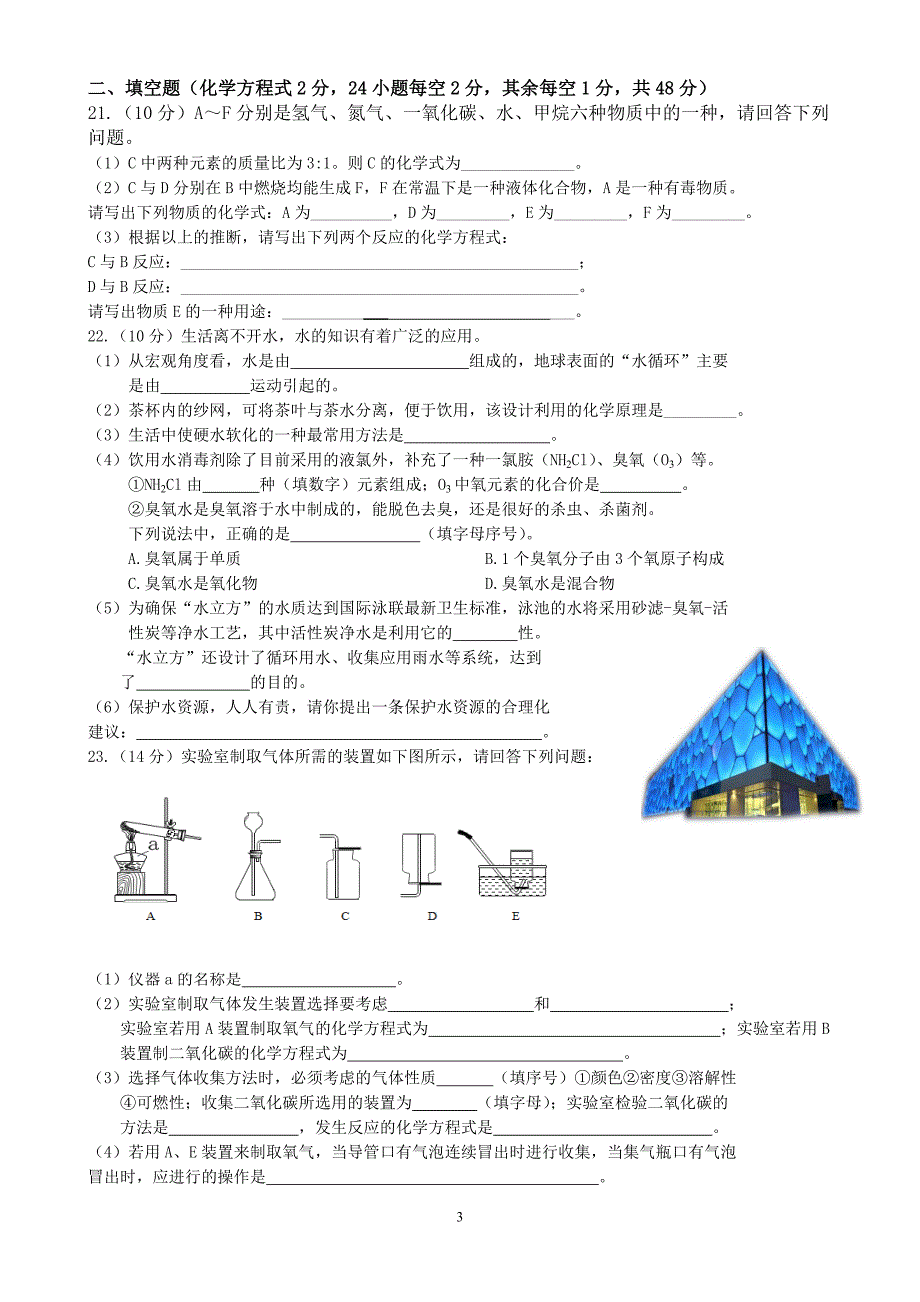 二、填空题（化学方程式2分，24小题每空2分，其余每空1分，共48分）
21.（10分）A～F分别是氢气、氮气、一氧化碳、水、甲烷六种物质中的一种，请回答下列
问题。
（1）C中两种元素的质量比为3:1。则C的化学式为______________。
（2）C与D分别在B中燃烧均能生成F，F在常温下是一种液体化合物，A是一种有毒物质。
请写出下列物质的化学式：A为__________，D为_________，E为_________，F为_________。
（3）根据以上的推断，请写出下列两个反应的化学方程式：
C与B反应：________________________________________________；
D与B反应：________________________________________________。
请写出物质E的一种用途：____________________________________。
22.（10分）生活离不开水，水的知识有着广泛的应用。
（1）从宏观角度看，水是由______________________组成的，地球表面的“水循环”主要
是由___________运动引起的。
（2）茶杯内的纱网，可将茶叶与茶水分离，便于饮用，该设计利用的化学原理是_________。
（3）生活中使硬水软化的一种最常用方法是__________________。
（4）饮用水消毒剂除了目前采用的液氯外，补充了一种一氯胺（NH₂Cl）、臭氧（O₃）等。
①NH₂Cl由_______种（填数字）元素组成；O₃中氧元素的化合价是__________。
②臭氧水是臭氧溶于水中制成的，能脱色去臭，还是很好的杀虫、杀菌剂。
下列说法中，正确的是________________（填字母序号）。
A.臭氧属于单质 B.1个臭氧分子由3个氧原子构成
C.臭氧水是氧化物 D.臭氧水是混合物
（5）为确保“水立方”的水质达到国际泳联最新卫生标准，泳池的水将采用砂滤-臭氧-活
性炭等净水工艺，其中活性炭净水是利用它的________性。
“水立方”还设计了循环用水、收集应用雨水等系统，达到
了______________的目的。
（6）保护水资源，人人有责，请你提出一条保护水资源的合理化
建议：__________________________________________________。
23.（14分）实验室制取气体所需的装置如下图所示，请回答下列问题：
a
A B C D E
（1）仪器a的名称是___________________。
（2）实验室制取气体发生装置选择要考虑__________________和______________________；
实验室若用A装置制取氧气的化学方程式为____________________________________；实验室若用B
装置制二氧化碳的化学方程式为__________________________________。
（3）选择气体收集方法时，必须考虑的气体性质_______（填序号）①颜色②密度③溶解性
④可燃性；收集二氧化碳所选用的装置为________（填字母）；实验室检验二氧化碳的
方法是________________，发生反应的化学方程式是___________________________。
（4）若用A、E装置来制取氧气，当导管口有气泡连续冒出时进行收集，当集气瓶口有气泡
冒出时，应进行的操作是_________________________________________。
3